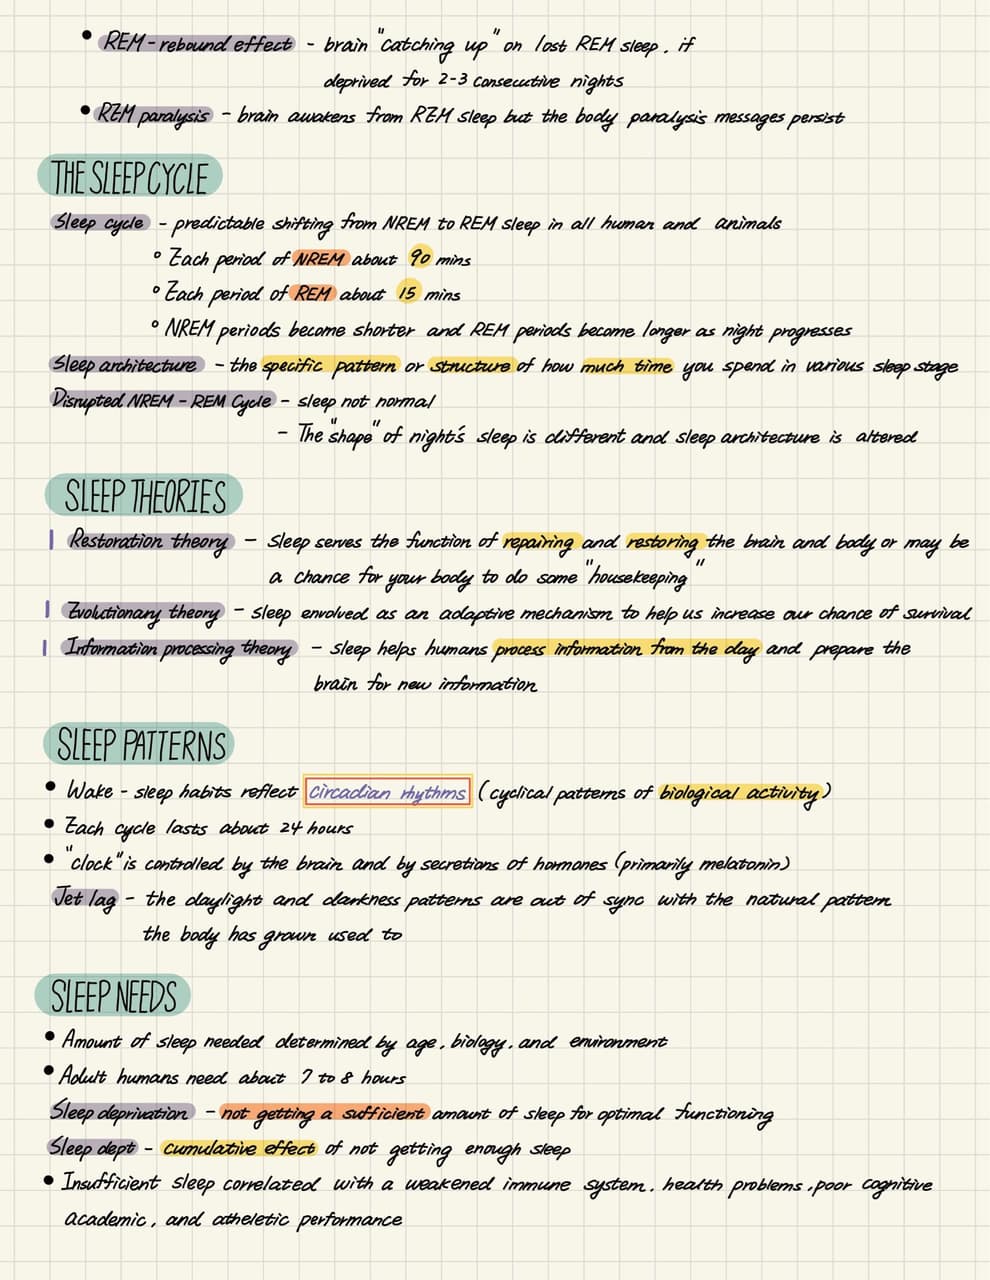 • REM - rebound effect - brain "catching up" on lost REM sleep, if
deprived for 2-3 consecutive nights
• REM paralysis - brain awakens from REM sleep but the body paralysis messages persist
THE SLEEP CYCLE
Sleep cycle - predictable shifting from NREM to REM sleep in all human and animals
° Each period of NREM about 90 mins
° Each period of REM about 15 mins
° NREM periods become shorter and REM periods become longer as night progresses
Sleep architecture - the specific pattern or structure of how much time you spend in various sleep stage
Disrupted NREM - REM Cycle - sleep not normal
- The "shape" of night's sleep is different and sleep architecture is altered
SLEEP THEORIES
| Restoration theory - sleep serves the function of repairing and restoring the brain and body or may be
a chance for your body to do some "housekeeping"
| Evolutionary theory - sleep envolved as an adaptive mechanism to help us increase our chance of survival
| Information processing theory - sleep helps humans process information from the day and prepare the
brain for new information
SLEEP PATTERNS
• Wake - sleep habits reflect circadian rhythms (cyclical patterns of biological activity)
• Each cycle lasts about 24 hours
• "clock" is controlled by the brain and by secretions of hormones (primarily melatonin)
Jet lag - the daylight and darkness patterns are out of sync with the natural pattern
the body has grown used to
SLEEP NEEDS
• Amount of sleep needed determined by age, biology, and environment
• Adult humans need about 7 to 8 hours
Sleep deprivation - not getting a sufficient amount of sleep for optimal functioning
Sleep dept - cumulative effect of not getting enough sleep
• Insufficient sleep correlated with a weakened immune system, health problems, poor cognitive
academic, and atheletic performance